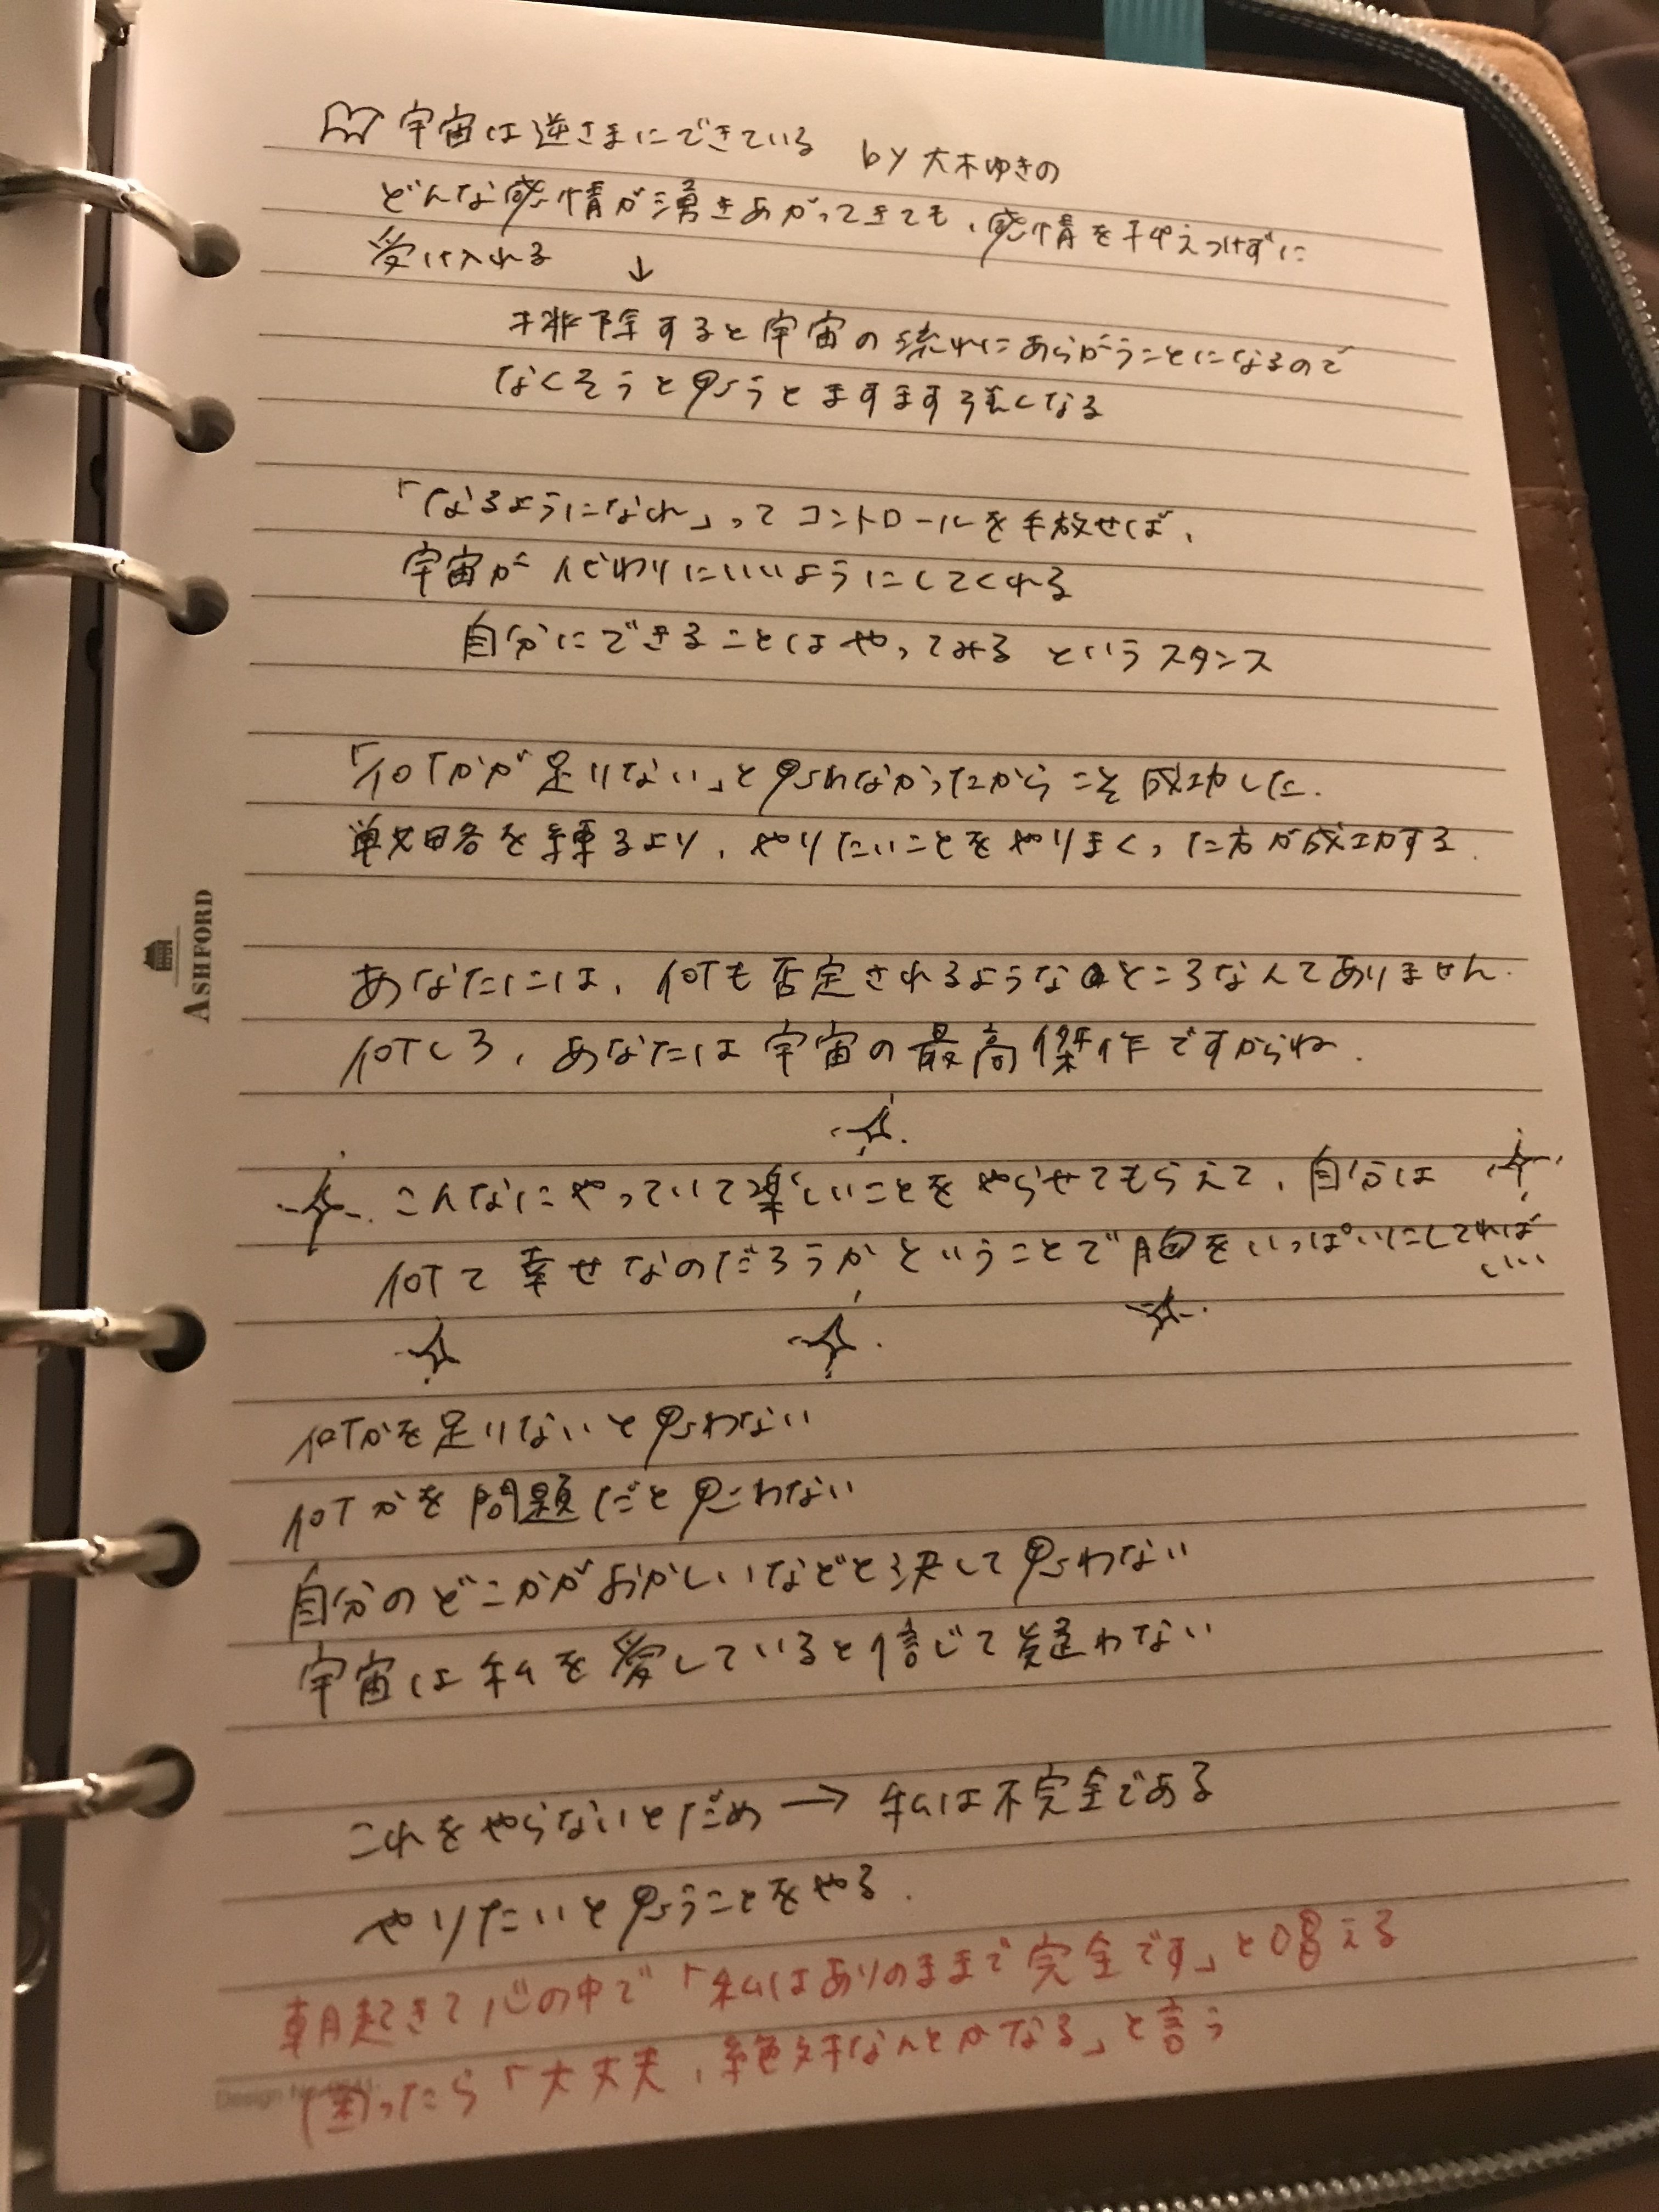 宇宙は逆さまにできている by 大木ゆきの
どんな感情が湧きあがってきても、感情を押さえつけずに
受け入れる ↓
排除すると宇宙の流れにあらがうことになるので
なくそうと思うとますます強くなる
「なるようになれ」ってコントロールを手放せば、
宇宙が代わりにいいようにしてくれる
自分にできることはやってみる というスタンス
「何かが足りない」と思わなかったからこそ成功した.
戦略を練るより、やりたいことをやりまくった方が成功する.
あなたには、何も否定されるようなところなんてありません.
何しろ、あなたは宇宙の最高傑作ですからね.
こんなにやっていて楽しいことをやらせてもらえて、自分は
何て幸せなのだろうかということで胸をいっぱいにしてれば
いい
何かを足りないと思わない
何かを問題だと思わない
自分のどこかがおかしいなどと決して思わない
宇宙は私を愛していると信じて疑わない
これをやらないとだめ → 私は不完全である
やりたいと思うことをやる.
朝起きて心の中で「私はありのままで完全です」と唱える
困ったら「大丈夫、絶対なんとかなる」と言う
ASHFORD